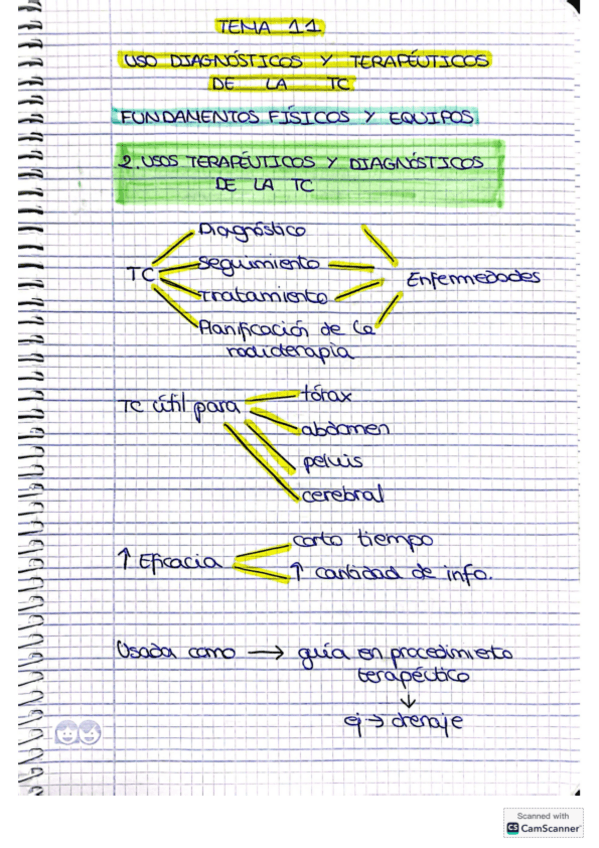 TEMA 11
USO DIAGNÓSTICOS Y TERAPÉUTICOS
DE LA TC
FUNDAMENTOS FÍSICOS Y EQUIPOS
2. USOS TERAPÉUTICOS Y DIAGNÓSTICOS
DE LA TC
Diagnóstico
seguimiento
TC
Enfermedades
tratamiento
Planificación de la
radioterapia
TC útil para
tórax
abdomen
pelvis
cerebral
↑ Eficacia
corto tiempo
↑ cantidad de info.
Usada como → guía en procedimiento
terapéutico
↓
ej → drenaje
Scanned with
CS CamScanner